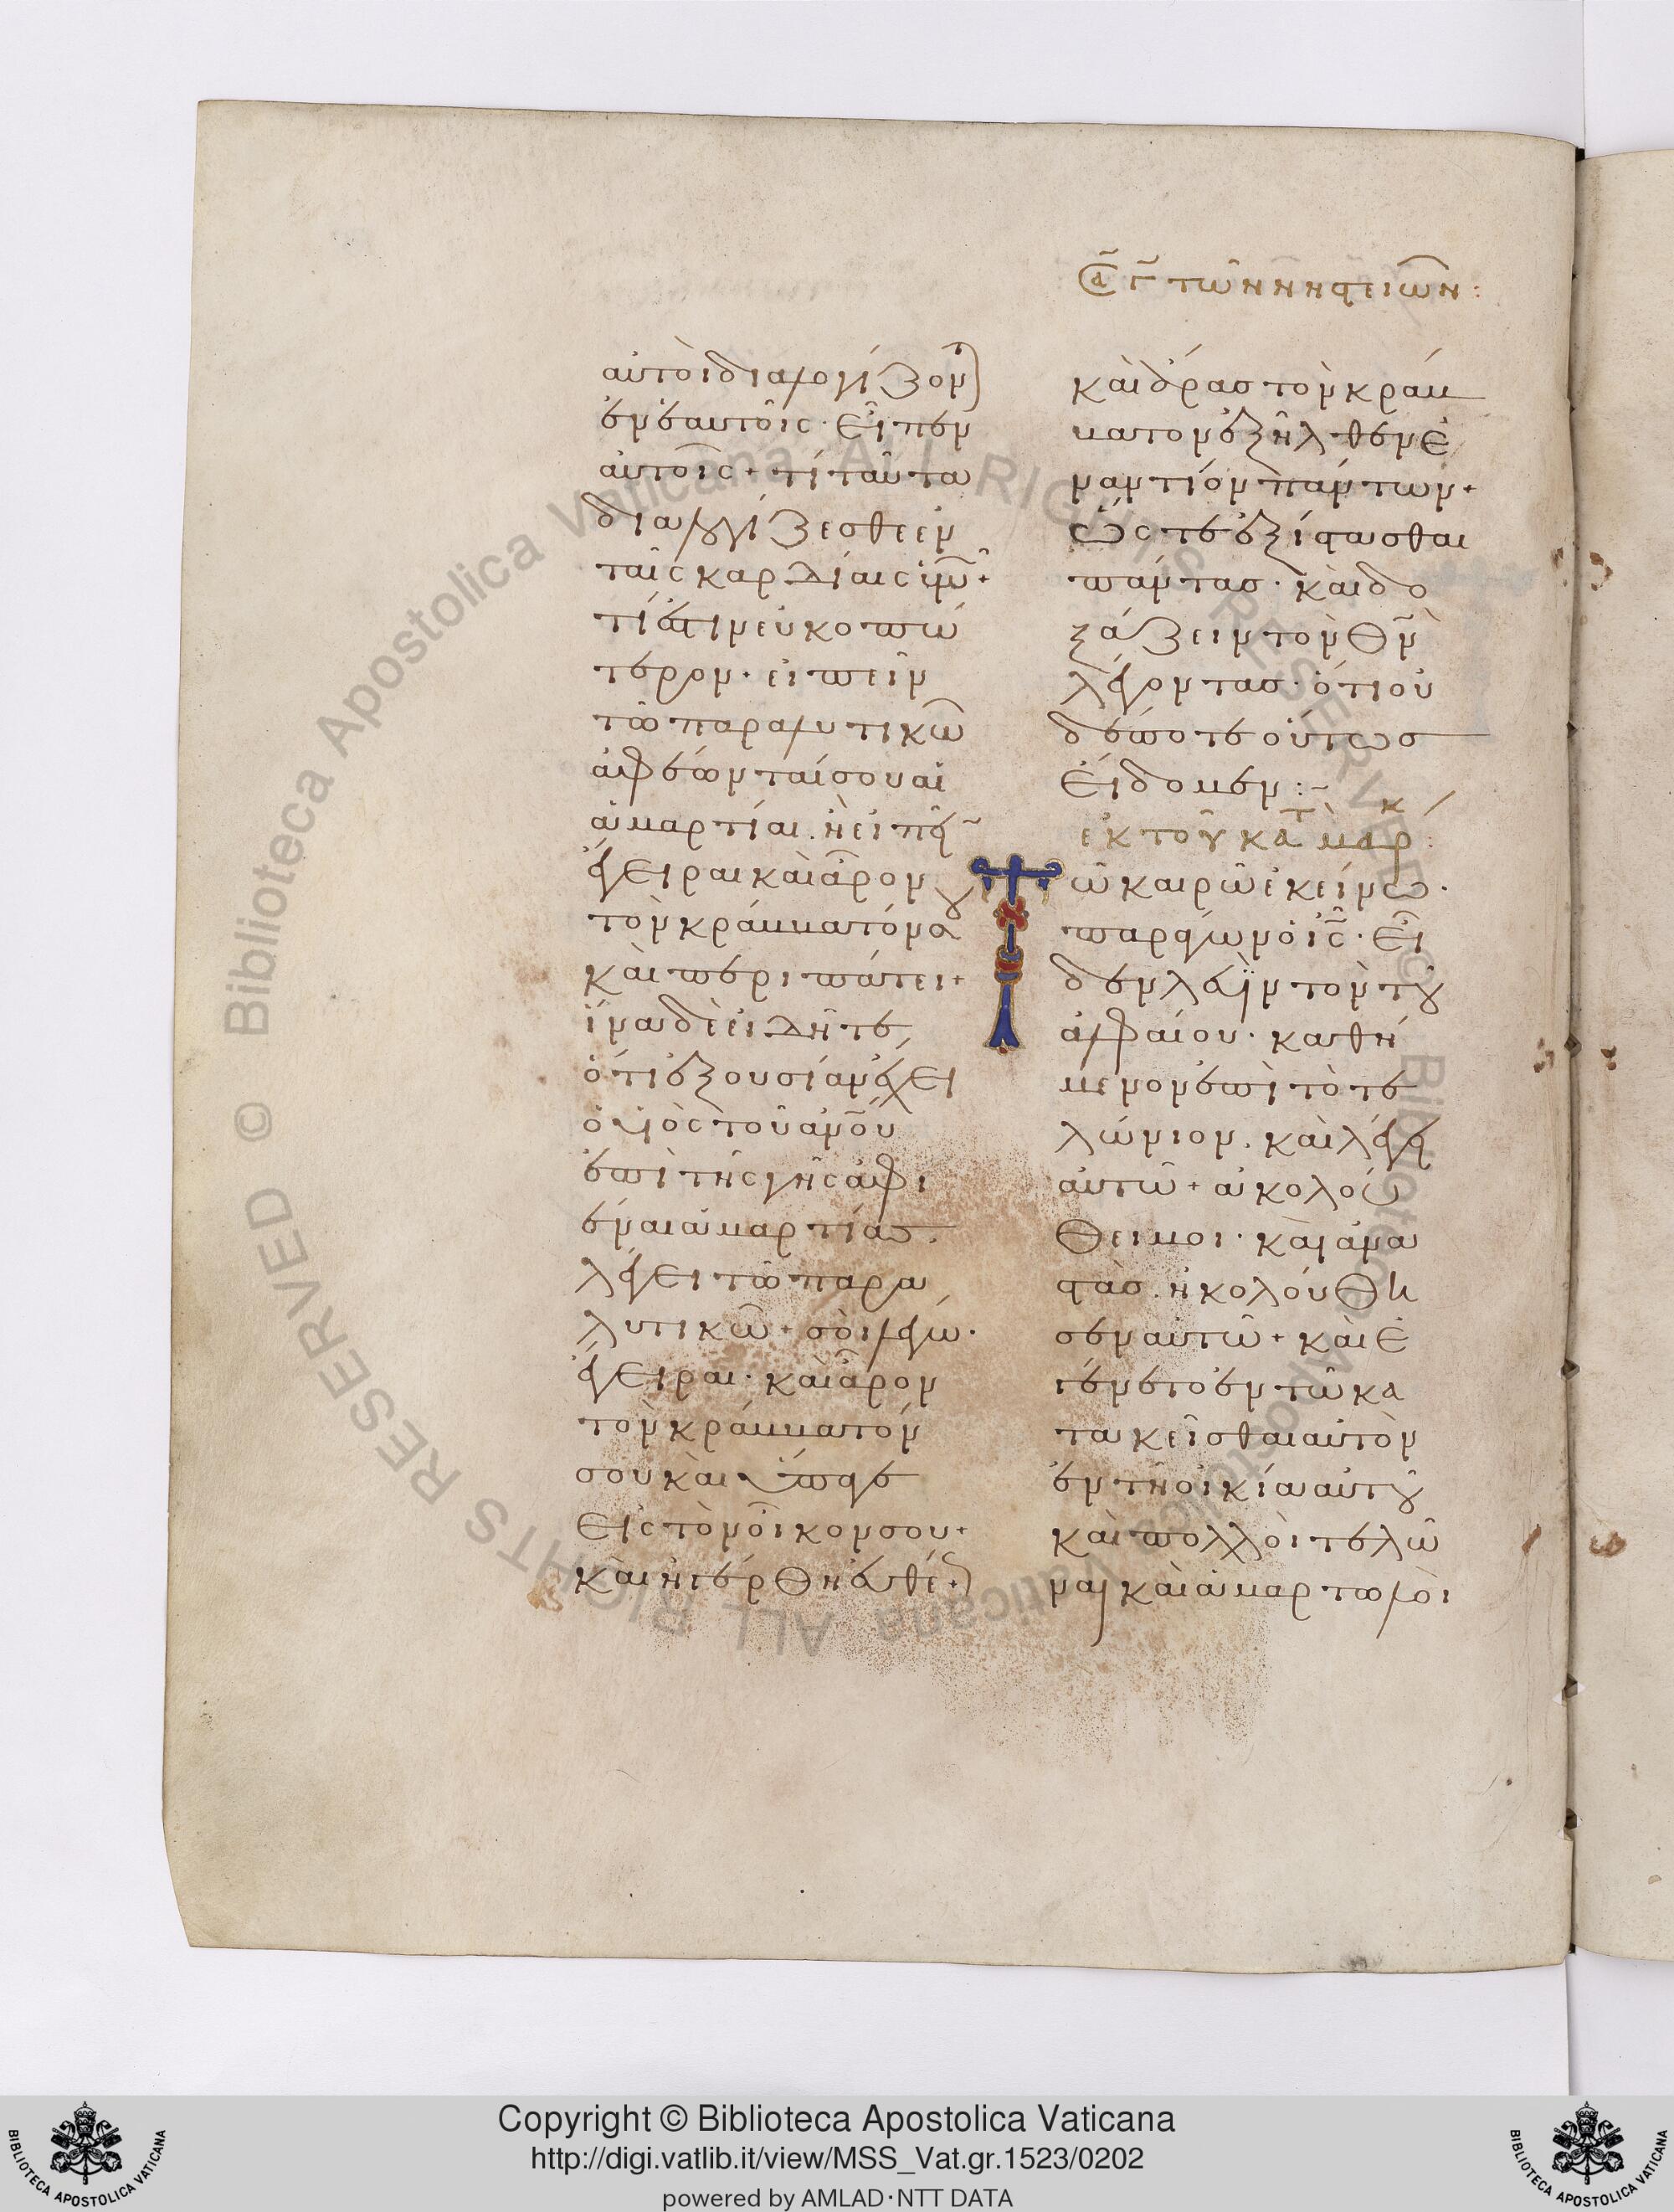 Σα Γ τῶν νηστειῶν:
αὐτοὶ διαλογίζοντ(αι)
ἐν ἑαυτοῖς· εἶπεν
αὐτοῖς + τί ταῦτα
διαλογίζεσθε ἐν
ταῖς καρδίαις ὑμῶ +
τί ἐστιν εὐκοπώ
τερον· εἰπεῖν
τῶ παραλυτικῶ
ἀφέωνταί σου αἱ
ἁμαρτίαι. ἢ εἰπεῖ
ἔγειραι καὶ ἆρον
τὸν κράμματόν σου
καὶ περιπάτει +
ἵνα δὲ εἰδῆτε
ὅτι ἐξουσίαν ἔχει
ὁ υἱὸς τοῦ ἀνου
ἐπὶ τῆς γῆς ἀφι
έναι ἁμαρτίας.
λέγει τῶ παρα
λυτικῶ + σοὶ λέγω·
ἔγειραι· καὶ ἆρον
τὸν κράμματόν
σου καὶ ὕπαγε
εἰς τὸν οἶκον σου +
καὶ ἠγέρθη εὐθέ(ως)
καὶ ἄρας τὸν κράμ
ματον ἐξῆλθεν ἐ
ναντίον πάντων +
ὥστε ἐξίστασθαι
πάντας· καὶ δο
ξάζειν τὸν θν
λέγοντας· ὅτι οὐ
δέποτε οὕτως
εἴδομεν :~
ἐκ τοῦ κατὰ μάρκ:
Τῶ καιρῶ ἐκείνω·
παράγων ὁ ις· εἶ
δεν λευῒν τὸν τοῦ
ἀλφαίου· καθή
μενον ἐπὶ τὸ τε
λώνιον. καὶ λέγει
αὐτῶ + ἀκολού
θει μοι· καὶ ἀνα
στὰς. ἠκολούθη
σεν αὐτῶ + καὶ ἐ
γένετο ἐν τῶ κα
τακεῖσθαι αὐτὸν
ἐν τῆ οἰκία αὐτοῦ
καὶ πολλοὶ τελῶ
ναι καὶ ἁμαρτωλοὶ
Copyright © Biblioteca Apostolica Vaticana
http://digi.vatlib.it/view/MSS_Vat.gr.1523/0202
powered by AMLAD·NTT DATA
BIBLIOTECA APOSTOLICA VATICANA
BIBLIOTECA APOSTOLICA VATICANA